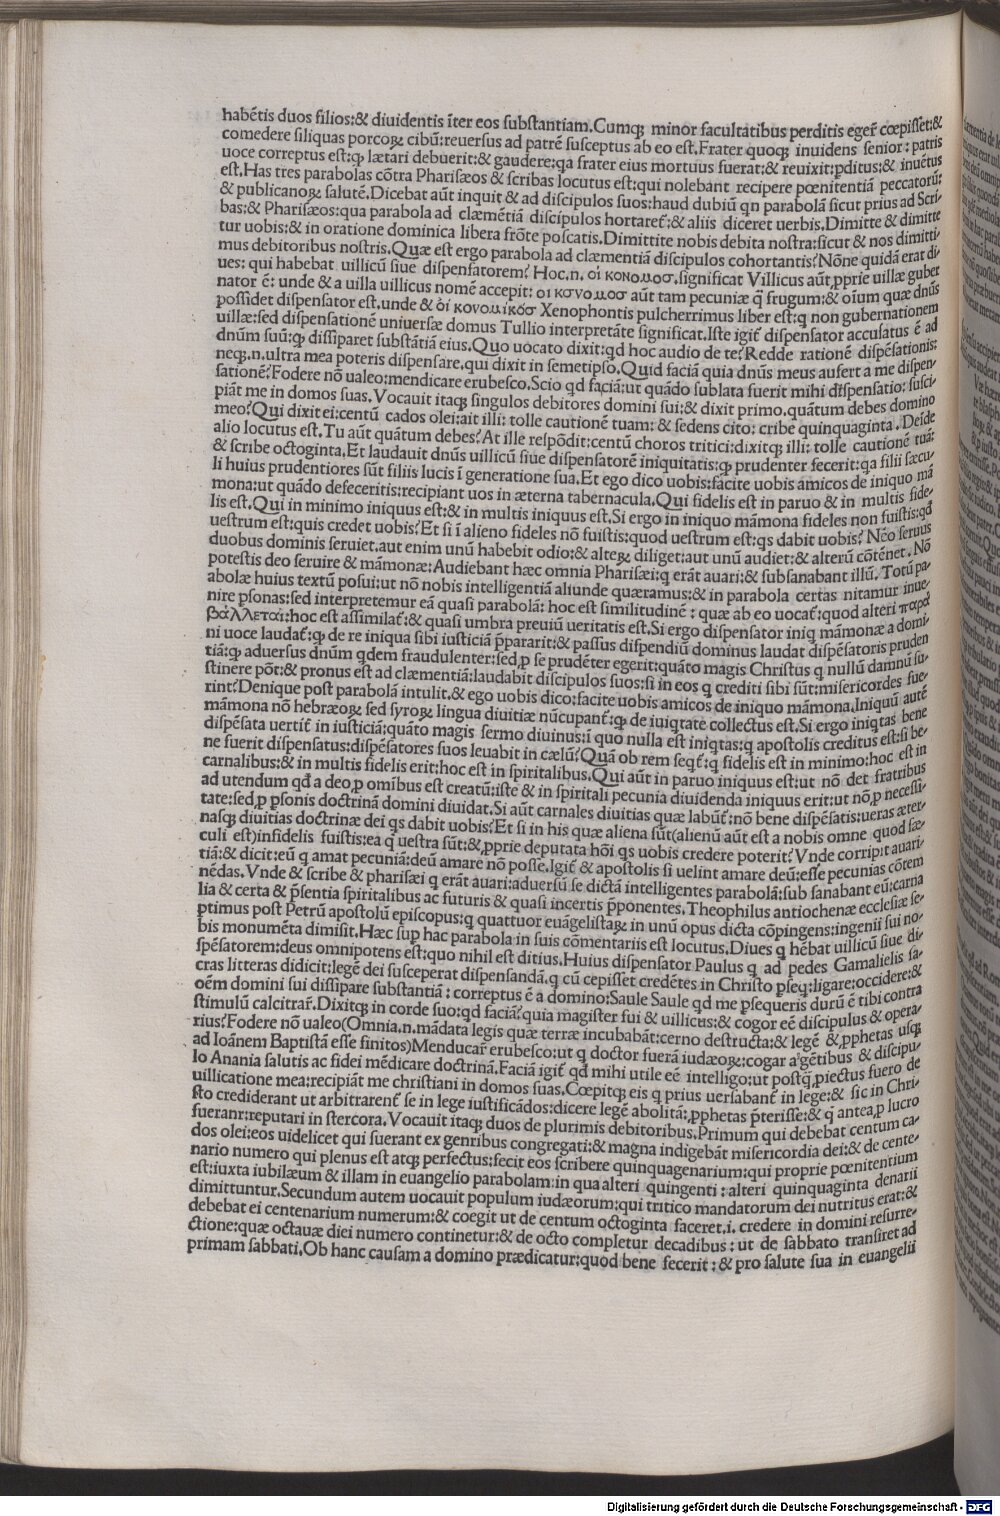 habētis duos filios:& diuidentis īter eos substantiam.Cumqȝ minor facultatibus perditis eger̄ cœpisset:&
comedere siliquas porcoꝝ cibū:reuersus ad patrē susceptus ab eo est.Frater quoqȝ inuidens senior: patris
uoce correptus est:ꝙ lætari debuerit:& gaudere:qa frater eius mortuus fuerat:& reuixit:pditus:& inuētus
est.Has tres parabolas cōtra Pharisæos & scribas locutus est:qui nolebant recipere pœnitentiā peccatorū:
& publicanoꝝ salutē.Dicebat aūt inquit & ad discipulos suos:haud dubiū qn parabolā sicut prius ad Scri-
bas:& Pharisæos:qua parabola ad clæmētiā discipulos hortaret̄:& aliis diceret uerbis.Dimitte & dimitte
tur uobis:& in oratione dominica libera frōte poscatis.Dimittite nobis debita nostra:sicut & nos dimitti-
mus debitoribus nostris.Quæ est ergo parabola ad clæmentiā discipulos cohortantis?Nōne quidā erat di-
ues: qui habebat uillicū siue dispensatorem? Hoc.n. οἱ κονομοσ.significat Villicus aūt,pprie uillæ guber
nator ē: unde & a uilla uillicus nomē accepit: οι κονομοσ aūt tam pecuniæ q̄ frugum:& oīum quæ dn̄s
possidet dispensator est.unde & ὁἱ κονομἰκὸσ Xenophontis pulcherrimus liber est:q non gubernationem
uillæ:sed dispensationē uniuersæ domus Tullio interpretāte significat.Iste igit̄ dispensator accusatus ē ad
dnūm suū:ꝙ dissiparet substātiā eius.Quo uocato dixit:qd hoc audio de te?Redde rationē dispēsationis:
neqȝ.n.ultra mea poteris dispensare.qui dixit in semetipso.Quid faciā quia dnūs meus aufert a me dispen-
sationē?Fodere nō ualeo:mendicare erubesco.Scio qd faciā:ut quādo sublata fuerit mihi dīspensatio: susci-
piāt me in domos suas.Vocauit itaqȝ singulos debitores domini sui:& dixit primo.quātum debes domino
meo?Qui dixit ei:centū cados olei:ait illi: tolle cautionē tuam: & sedens cito: cribe quinquaginta . Deīde
alio locutus est.Tu aūt quātum debes?At ille respōdit:centū choros tritici:dixitqȝ illi: tolle cautionē tuā:
& scribe octoginta.Et laudauit dnūs uillicū siue dispensatorē iniquitatis:ꝙ prudenter fecerit:qa filii sæcu-
li huius prudentiores sūt filiis lucis ī generatione sua.Et ego dico uobis:facite uobis amicos de iniquo mā
mona:ut quādo defeceritis:recipiant uos in æterna tabernacula.Qui fidelis est in paruo & in multis fide-
lis est.Qui in minimo iniquus est:& in multis iniquus est.Si ergo in iniquo māmona fideles non fuistis:qd̄
uestrum est:quis credet uobis?Et si ī alieno fideles nō fuistis:quod uestrum est:qs dabit uobis? Nēo seruus
duobus dominis seruiet.aut enim unū habebit odio:& alteꝝ diliget:aut unū audiet:& alterū cōtēnet. Nō
potestis deo seruire & māmonæ:Audiebant hæc omnia Pharisæi:q erāt auari:& subsanabant illū. Totū pa-
abolæ huius textū posui:ut nō nobis intelligentiā aliunde quæramus:& in parabola certas nitamur inue-
nire psonas:sed interpretemur eā quasi parabolā: hoc est similitudinē: quæ ab eo uocat̄:quod alteri παρα
βάλλεται:hoc est assimilat̄:& quasi umbra preuiū ueritatis est.Si ergo dispensator iniq māmonæ a domi-
ni uoce laudat̄:ꝙ de re iniqua sibi iusticiā p̄pararit:& passus dispendiū dominus laudat dispēsatoris pruden
tiā:ꝙ aduersus dnūm qdem fraudulenter:sed,p se prudēter egerit:quāto magis Christus q nullū damnū su-
stinere pōt:& pronus est ad clæmentiā:laudabit discipulos suos:si in eos q crediti sibi sūt:misericordes fue-
rint?Denique post parabolā intulit.& ego uobis dico:facite uobis amicos de iniquo māmona.Iniquū autē
māmona nō hebræoꝝ sed syroꝝ lingua diuitiæ nūcupant̄:ꝙ de iniqtate collectus est.Si ergo iniqtas bene
dispēsata uertit̄ in iusticiā:quāto magis sermo diuinus:ī quo nulla est iniqtas:q apostolis creditus est:si be-
ne fuerit dispensatus:dispēsatores suos leuabit in cælū?Quā ob rem seqt̄:q fidelis est in minimo:hoc est in
carnalibus:& in multis fidelis erit:hoc est in spiritalibus.Qui aūt in paruo iniquus est:ut nō det fratribus
ad utendum qd̄ a deo,p omībus est creatū:iste & in spiritali pecunia diuidenda iniquus erit:ut nō,p necessi-
tate:sed,p psonis doctrinā domini diuidat.Si aūt carnales diuitias quæ labūt̄:nō bene dispēsatis:ueras æter-
nasqȝ diuitias doctrinæ dei qs dabit uobis?Et si in his quæ aliena sūt(alienū aūt est a nobis omne quod sæ-
culi est)infidelis fuistis:ea q̄ uestra sūt:&,pprie deputata hōi qs uobis credere poterit?Vnde corripit auari-
tiā:& dicit:eū q amat pecuniā:deū amare nō posse.Igit̄ & apostolis si uelint amare deū:esse pecunias cōtem
nēdas.Vnde & scribe & pharisæi q erāt auari:aduersū se dictā intelligentes parabolā:sub sanabant eū:carna
lia & certa & p̄sentia spiritalibus ac futuris & quasi incertis p̄ponentes.Theophilus antiochenæ ecclesiæ se-
ptimus post Petrū apostolū episcopus:q quattuor euāgelistaꝝ in unū opus dicta cōpingens:ingenii sui no-
bis monumēta dimisit.Hæc sup hac parabola in suis cōmentariis est locutus.Diues q hēbat uillicū siue di-
spēsatorem:deus omnipotens est:quo nihil est ditius.Huius dispensator Paulus q ad pedes Gamalielis sa-
cras litteras didicit:legē dei susceperat dispensandā.q cū cepisset credētes in Christo pseq:ligare:occidere:&
oēm domini sui dissipare substantiā: correptus ē a domino:Saule Saule qd me psequeris durū ē tibi contra
stimulū calcitrar̄.Dixitqȝ in corde suo:qd faciā?quia magister fui & uillicus:& cogor eē discipulus & opera-
rius?Fodere nō ualeo(Omnia.n.mādata legis quæ terræ incubabāt:cerno destructa:& legē &,pphetas usqȝ
ad Ioānem Baptistā esse finitos)Menducar̄ erubesco:ut q doctor fuerā iudæoꝝ:cogar a'gētibus & discipu-
lo Anania salutis ac fidei mēdicare doctrinā.Faciā igit̄ qd̄ mihi utile eē intelligo:ut postq̄,piectus fuero de
uillicatione mea:recipiāt me christiani in domos suas.Cœpitqȝ eis q prius uersabant̄ in lege:& sic in Chri-
sto crediderant ut arbitrarent̄ se in lege iustificādos:dicere legē abolitā:,pphetas p̄terisse:& q̄ antea,p lucro
fueranr:reputari in stercora.Vocauit itaqȝ duos de plurimis debitoribus.Primum qui debebat centum ca-
dos olei:eos uidelicet qui fuerant ex genribus congregati:& magna indigebāt misericordia dei:& de cente-
nario numero qui plenus est atqȝ perfectus:fecit eos scribere quinquagenarium:qui proprie pœnitentium
est:iuxta iubilæum & illam in euangelio parabolam:in qua alteri quingenti : alteri quinquaginta denarii
dimittuntur.Secundum autem uocauit populum iudæorum:qui tritico mandatorum dei nutritus erat:&
debebat ei centenarium numerum:& coegit ut de centum octoginta faceret.i. credere in domini resurre-
ctione:quæ octauæ diei numero continetur:& de octo completur decadibus : ut de sabbato transiret ad
primam sabbati.Ob hanc causam a domino prædicatur:quod bene fecerit : & pro salute sua in euangelii
Digitalisierung gefördert durch die Deutsche Forschungsgemeinschaft - DFG